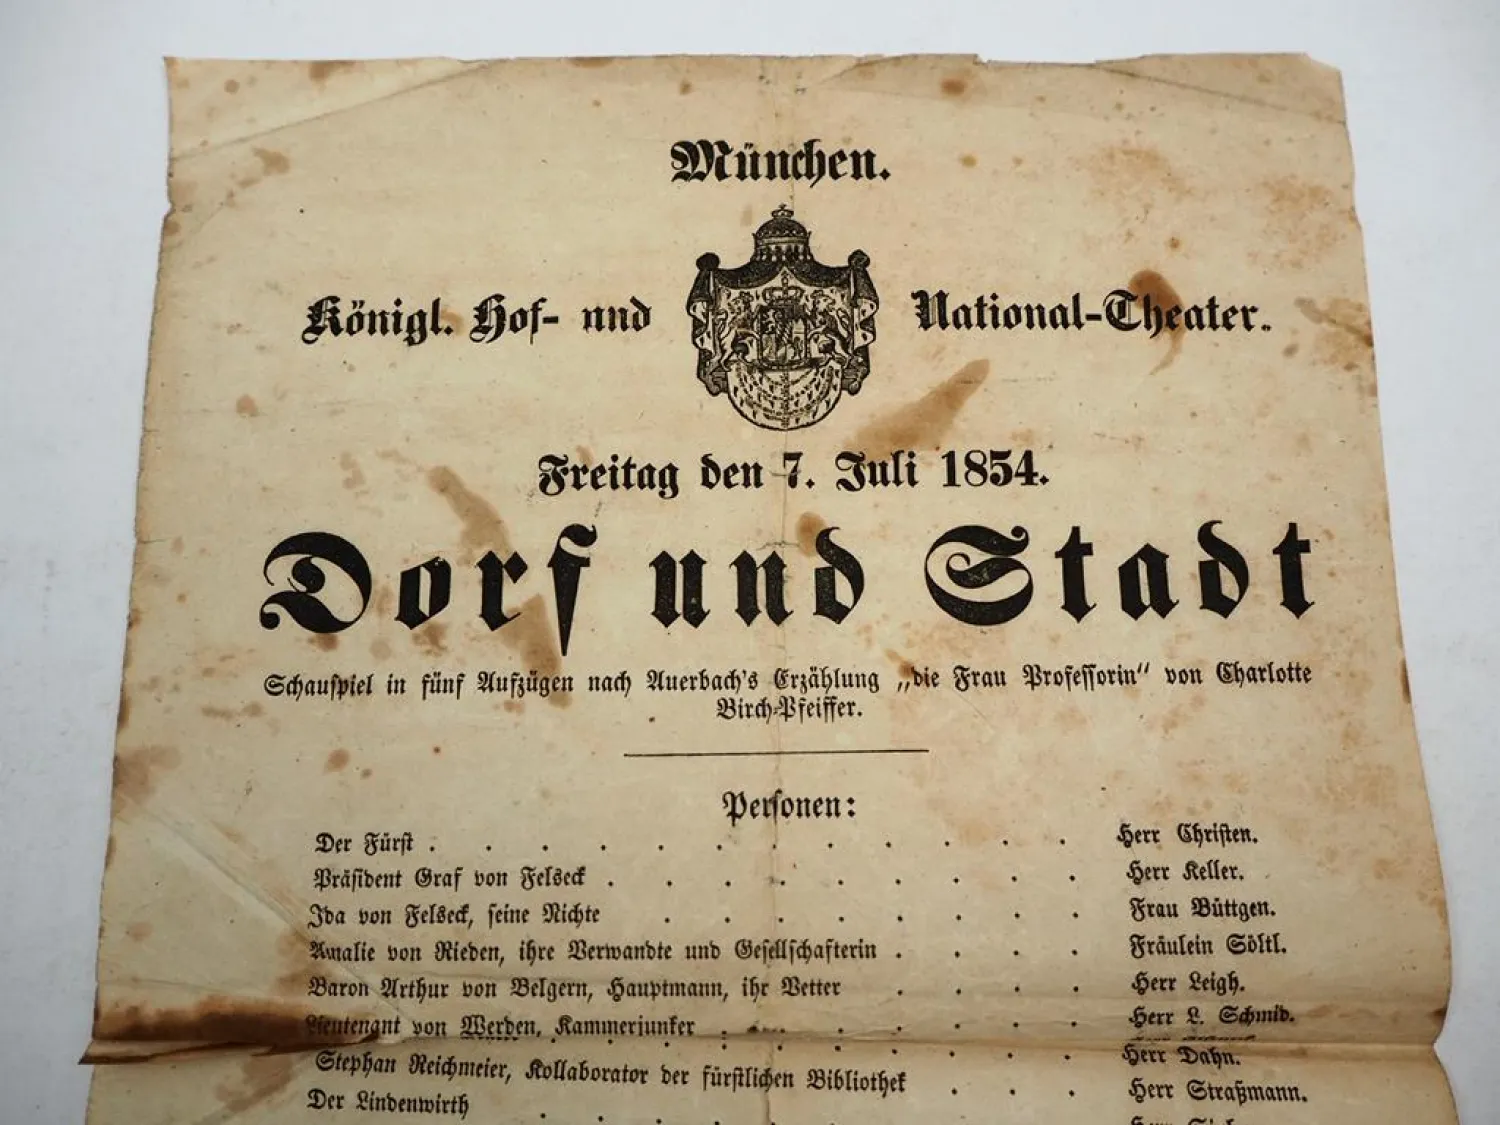 München.
Königl. Hof- und National-Theater.
Freitag den 7. Juli 1854.
Dorf und Stadt
Schauspiel in fünf Aufzügen nach Auerbach's Erzählung „die Frau Professorin“ von Charlotte
Birch-Pfeiffer.
Personen:
Der Fürst . . . . . . . . . . . . Herr Christen.
Präsident Graf von Felseck . . . . . . . . . Herr Keller.
Ida von Felseck, seine Nichte . . . . . . . . Frau Büttgen.
Amalie von Rieden, ihre Verwandte und Gesellschafterin . . . . Fräulein Söltl.
Baron Arthur von Belgern, Hauptmann, ihr Vetter . . . . Herr Leigh.
Lieutenant von Werden, Kammerjunker . . . . . . . Herr L. Schmid.
Herr Dahn.
Stephan Reichmeier, Kollaborator der fürstlichen Bibliothek . . . Herr Straßmann.
Der Lindenwirth